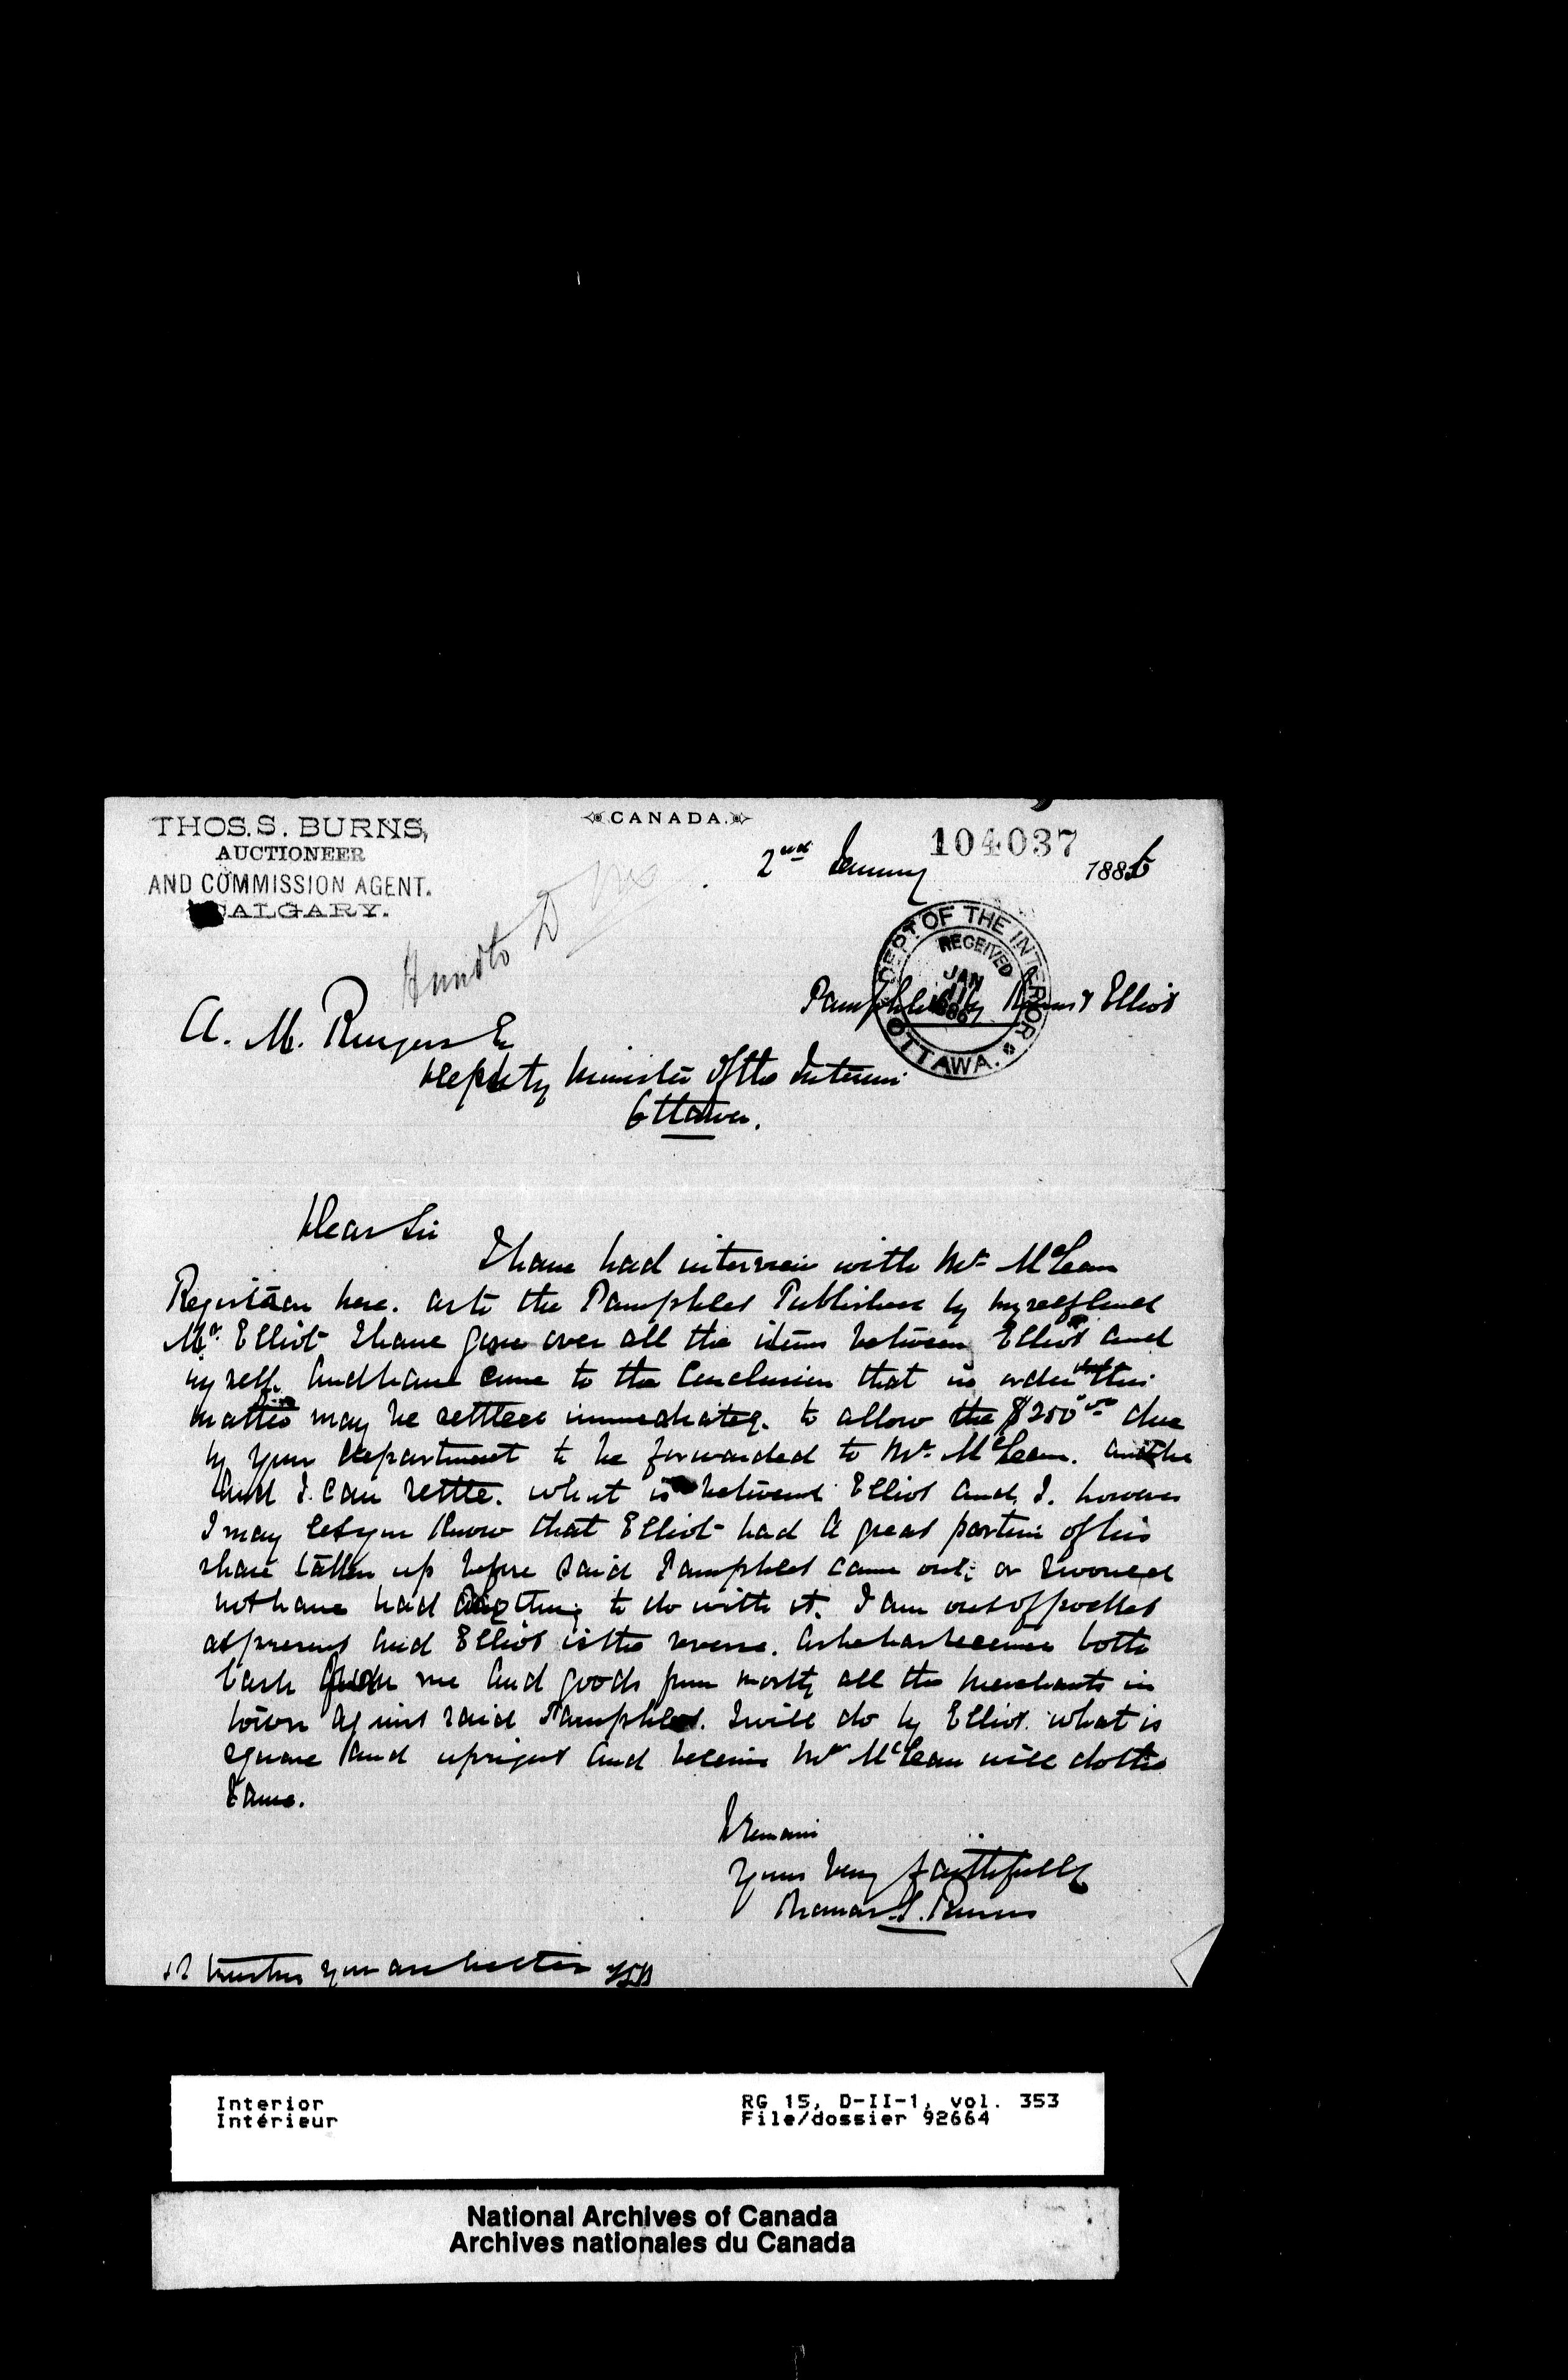 THOS. S. BURNS,
AUCTIONEER
AND COMMISSION AGENT.
CALGARY.
CANADA.
104037
2nd January 1886
DEPT OF THE INTERIOR
RECEIVED
JAN 11 1886
OTTAWA.
Pamphlet by Burns & Elliot
A. M. Burgess E
Deputy Minister of the Interior
Ottawa.
Dear Sir
I have had interview with Mr McLean
Registrar here. as to the Pamphlet Published by myself and
Mr Elliot I have gone over all the items between Elliot and
myself. And have come to the Conclusion that in order that this
matter may be settled immediately. to allow the $250.00 due
by your Department to be forwarded to Mr McLean. and he
and I can settle. what is between Elliot and I. however
I may let you Know that Elliot had a great portion of his
share taken up before said Pamphlet came out; or I would
not have had anything to do with it. I am out of pocket
at present and Elliot is the reverse. as he has received both
Cash from me and goods from mostly all the Merchants in
town against said Pamphlet. I will do by Elliot. what is
square and upright and believe Mr McLean will do the
Same.
I Remain
Yours Very faithfully
Thomas S. Burns
trusting you are better TSB
Interior
Intérieur
RG 15, D-II-1, vol. 353
File/dossier 92664
National Archives of Canada
Archives nationales du Canada